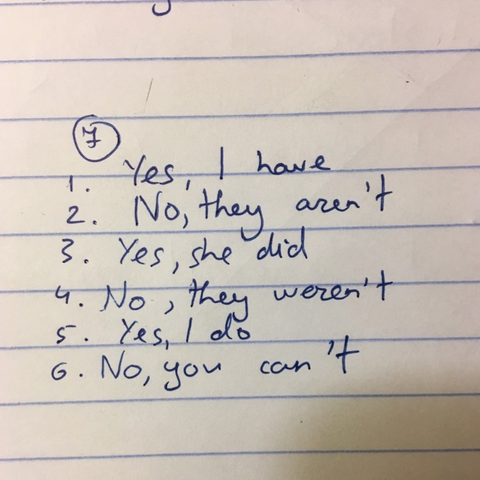 7
1. Yes, I have
2. No, they aren't
3. Yes, she did
4. No, they weren't
5. Yes, I do
6. No, you can't